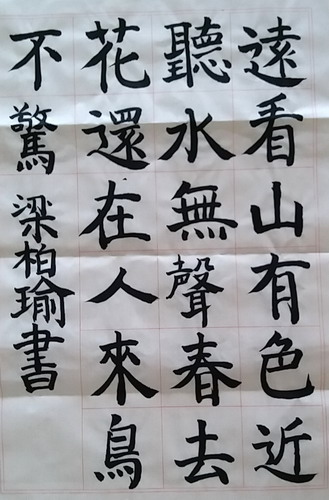 遠看山有色近
聽水無聲春去
花還在人來鳥
不驚 梁柏瑜書